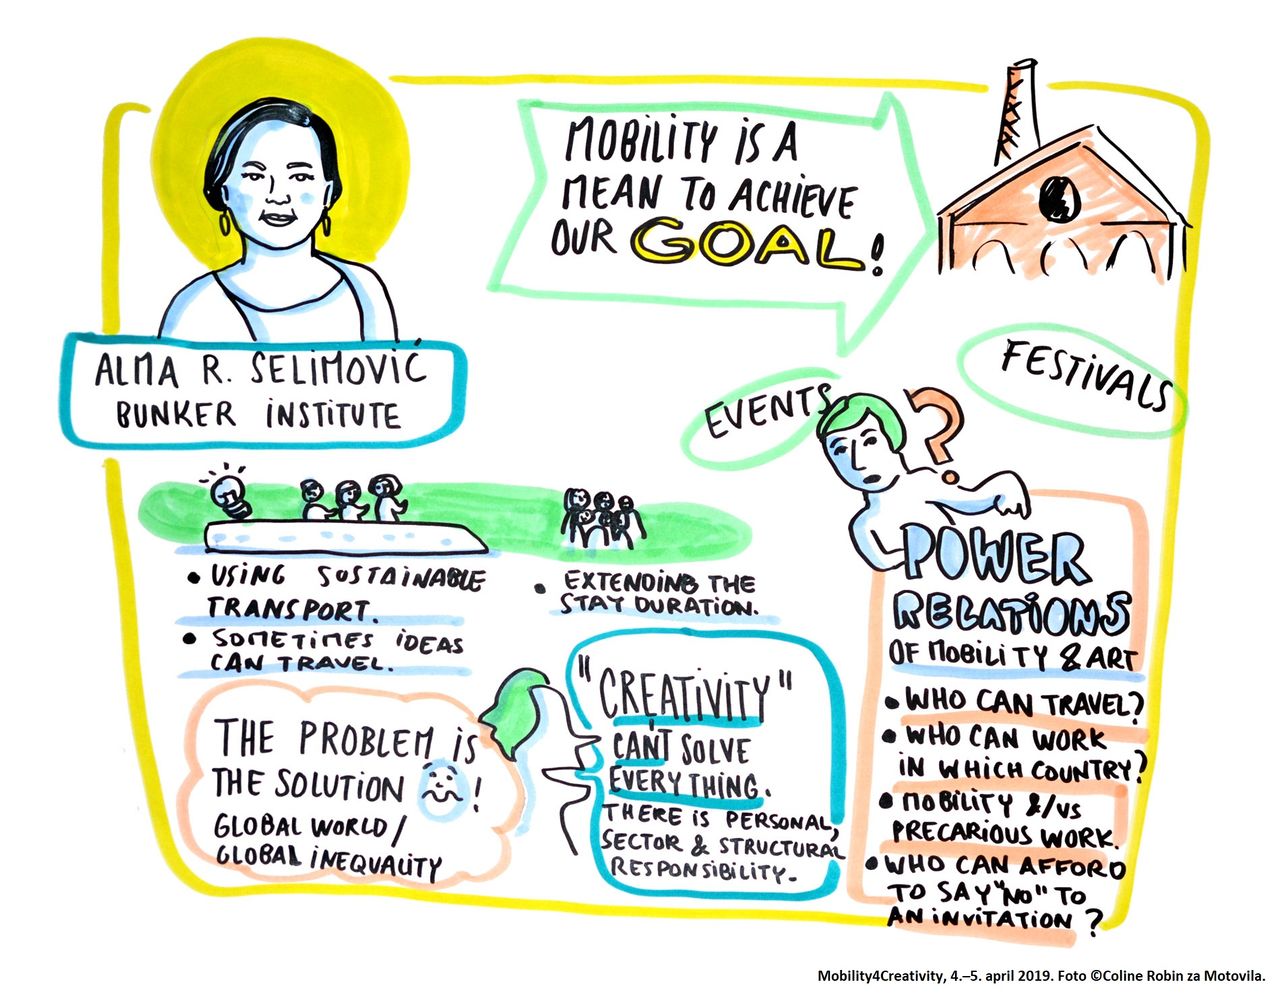 MOBILITY IS A
MEAN TO ACHIEVE
OUR GOAL!
ALMA R. SELIMOVIĆ
BUNKER INSTITUTE
EVENTS
?
FESTIVALS
• USING SUSTAINABLE
TRANSPORT.
• SOMETIMES IDEAS
CAN TRAVEL.
• EXTENDING THE
STAY DURATION.
THE PROBLEM IS
THE SOLUTION !
GLOBAL WORLD/
GLOBAL INEQUALITY
"CREATIVITY"
CAN'T SOLVE
EVERYTHING.
THERE IS PERSONAL,
SECTOR & STRUCTURAL
RESPONSIBILITY.
POWER
RELATIONS
OF MOBILITY & ART
• WHO CAN TRAVEL?
• WHO CAN WORK
IN WHICH COUNTRY?
• MOBILITY &/VS
PRECARIOUS WORK.
• WHO CAN AFFORD
TO SAY "NO" TO
AN INVITATION ?
Mobility4Creativity, 4.–5. april 2019. Foto ©Coline Robin za Motovila.